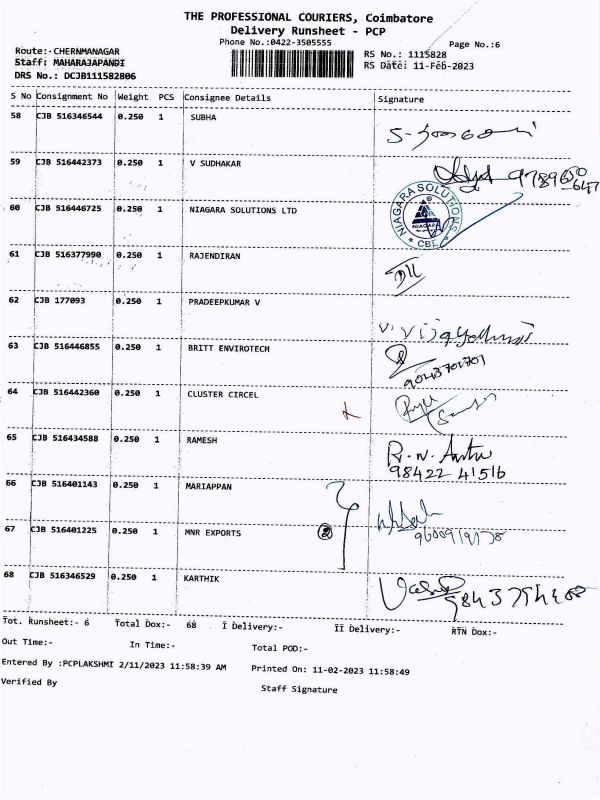 THE PROFESSIONAL COURIERS, Coimbatore
Delivery Runsheet - PCP
Phone No.:0422-3505555
Page No.:6
Route:-CHERNMANAGAR
RS No.: 1115828
Staff: MAHARAJAPANDI
RS Date: 11-Feb-2023
DRS No.: DCJB111582806
S No Consignment No Weight PCS Consignee Details Signature
58 CJB 516346544 0.250 1 SUBHA
59 CJB 516442373 0.250 1 V SUDHAKAR
60 CJB 516446725 0.250 1 NIAGARA SOLUTIONS LTD NIAGARA SOLUTIONS NIAGARA * CBE *
61 CJB 516377990 0.250 1 RAJENDIRAN
62 CJB 177093 0.250 1 PRADEEPKUMAR V
63 CJB 516446855 0.250 1 BRITT ENVIROTECH
9043701701
64 CJB 516442360 0.250 1 CLUSTER CIRCEL
65 CJB 516434588 0.250 1 RAMESH
98422 41516
66 CJB 516401143 0.250 1 MARIAPPAN
67 CJB 516401225 0.250 1 MNR EXPORTS 2
68 CJB 516346529 0.250 1 KARTHIK
Tot. Runsheet:- 6 Total Dox:- 68 I Delivery:- II Delivery:- RTN Dox:-
Out Time:- In Time:- Total POD:-
Entered By :PCPLAKSHMI 2/11/2023 11:58:39 AM Printed On: 11-02-2023 11:58:49
Verified By Staff Signature